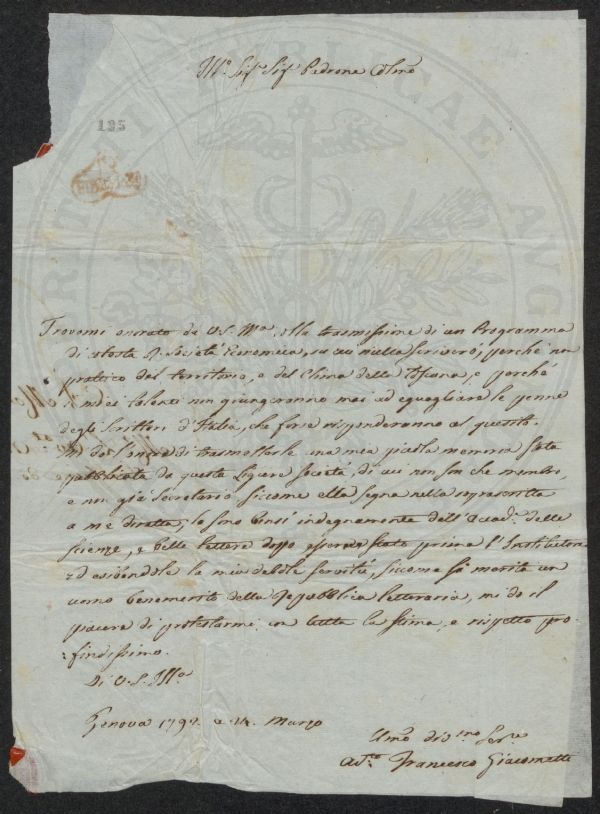 Ill.o Sig.r Sig.r Padrone Colmo
135
Trovomi onorato da V.S. Ill.ma colla trasmissione di un Programma
di codesta R. Società Economica, su cui nulla scriverò, perchè non
pratico del territorio, e del Clima della Toscana, e perchè
i miei talenti non giungeranno mai ad eguagliare le penne
degli Scrittori d'Italia, che forse risponderanno al quesito.
Ho dei l'onore di trasmetterle una mia piccola memoria stata
pubblicata da questa Ligure Società di cui non son che membro,
e non già Secretario, siccome ella segna nella soprascritta
a me diretta, lo sono bensì indegnamente dell'Accad.a delle
Scienze, e belle lettere doppo esserne stato prima l'Institutore
ed esibendole la mia debole servitù, siccome si merita un
uomo benemerito della Repubblica letteraria, mi do il
piacere di protestarmi con tutta la stima, e rispetto pro-
:fondissimo.
Di V.S. Ill.ma
Genova 1792 a 14. Marzo
Umo divmo Serve
Francesco Giacometti